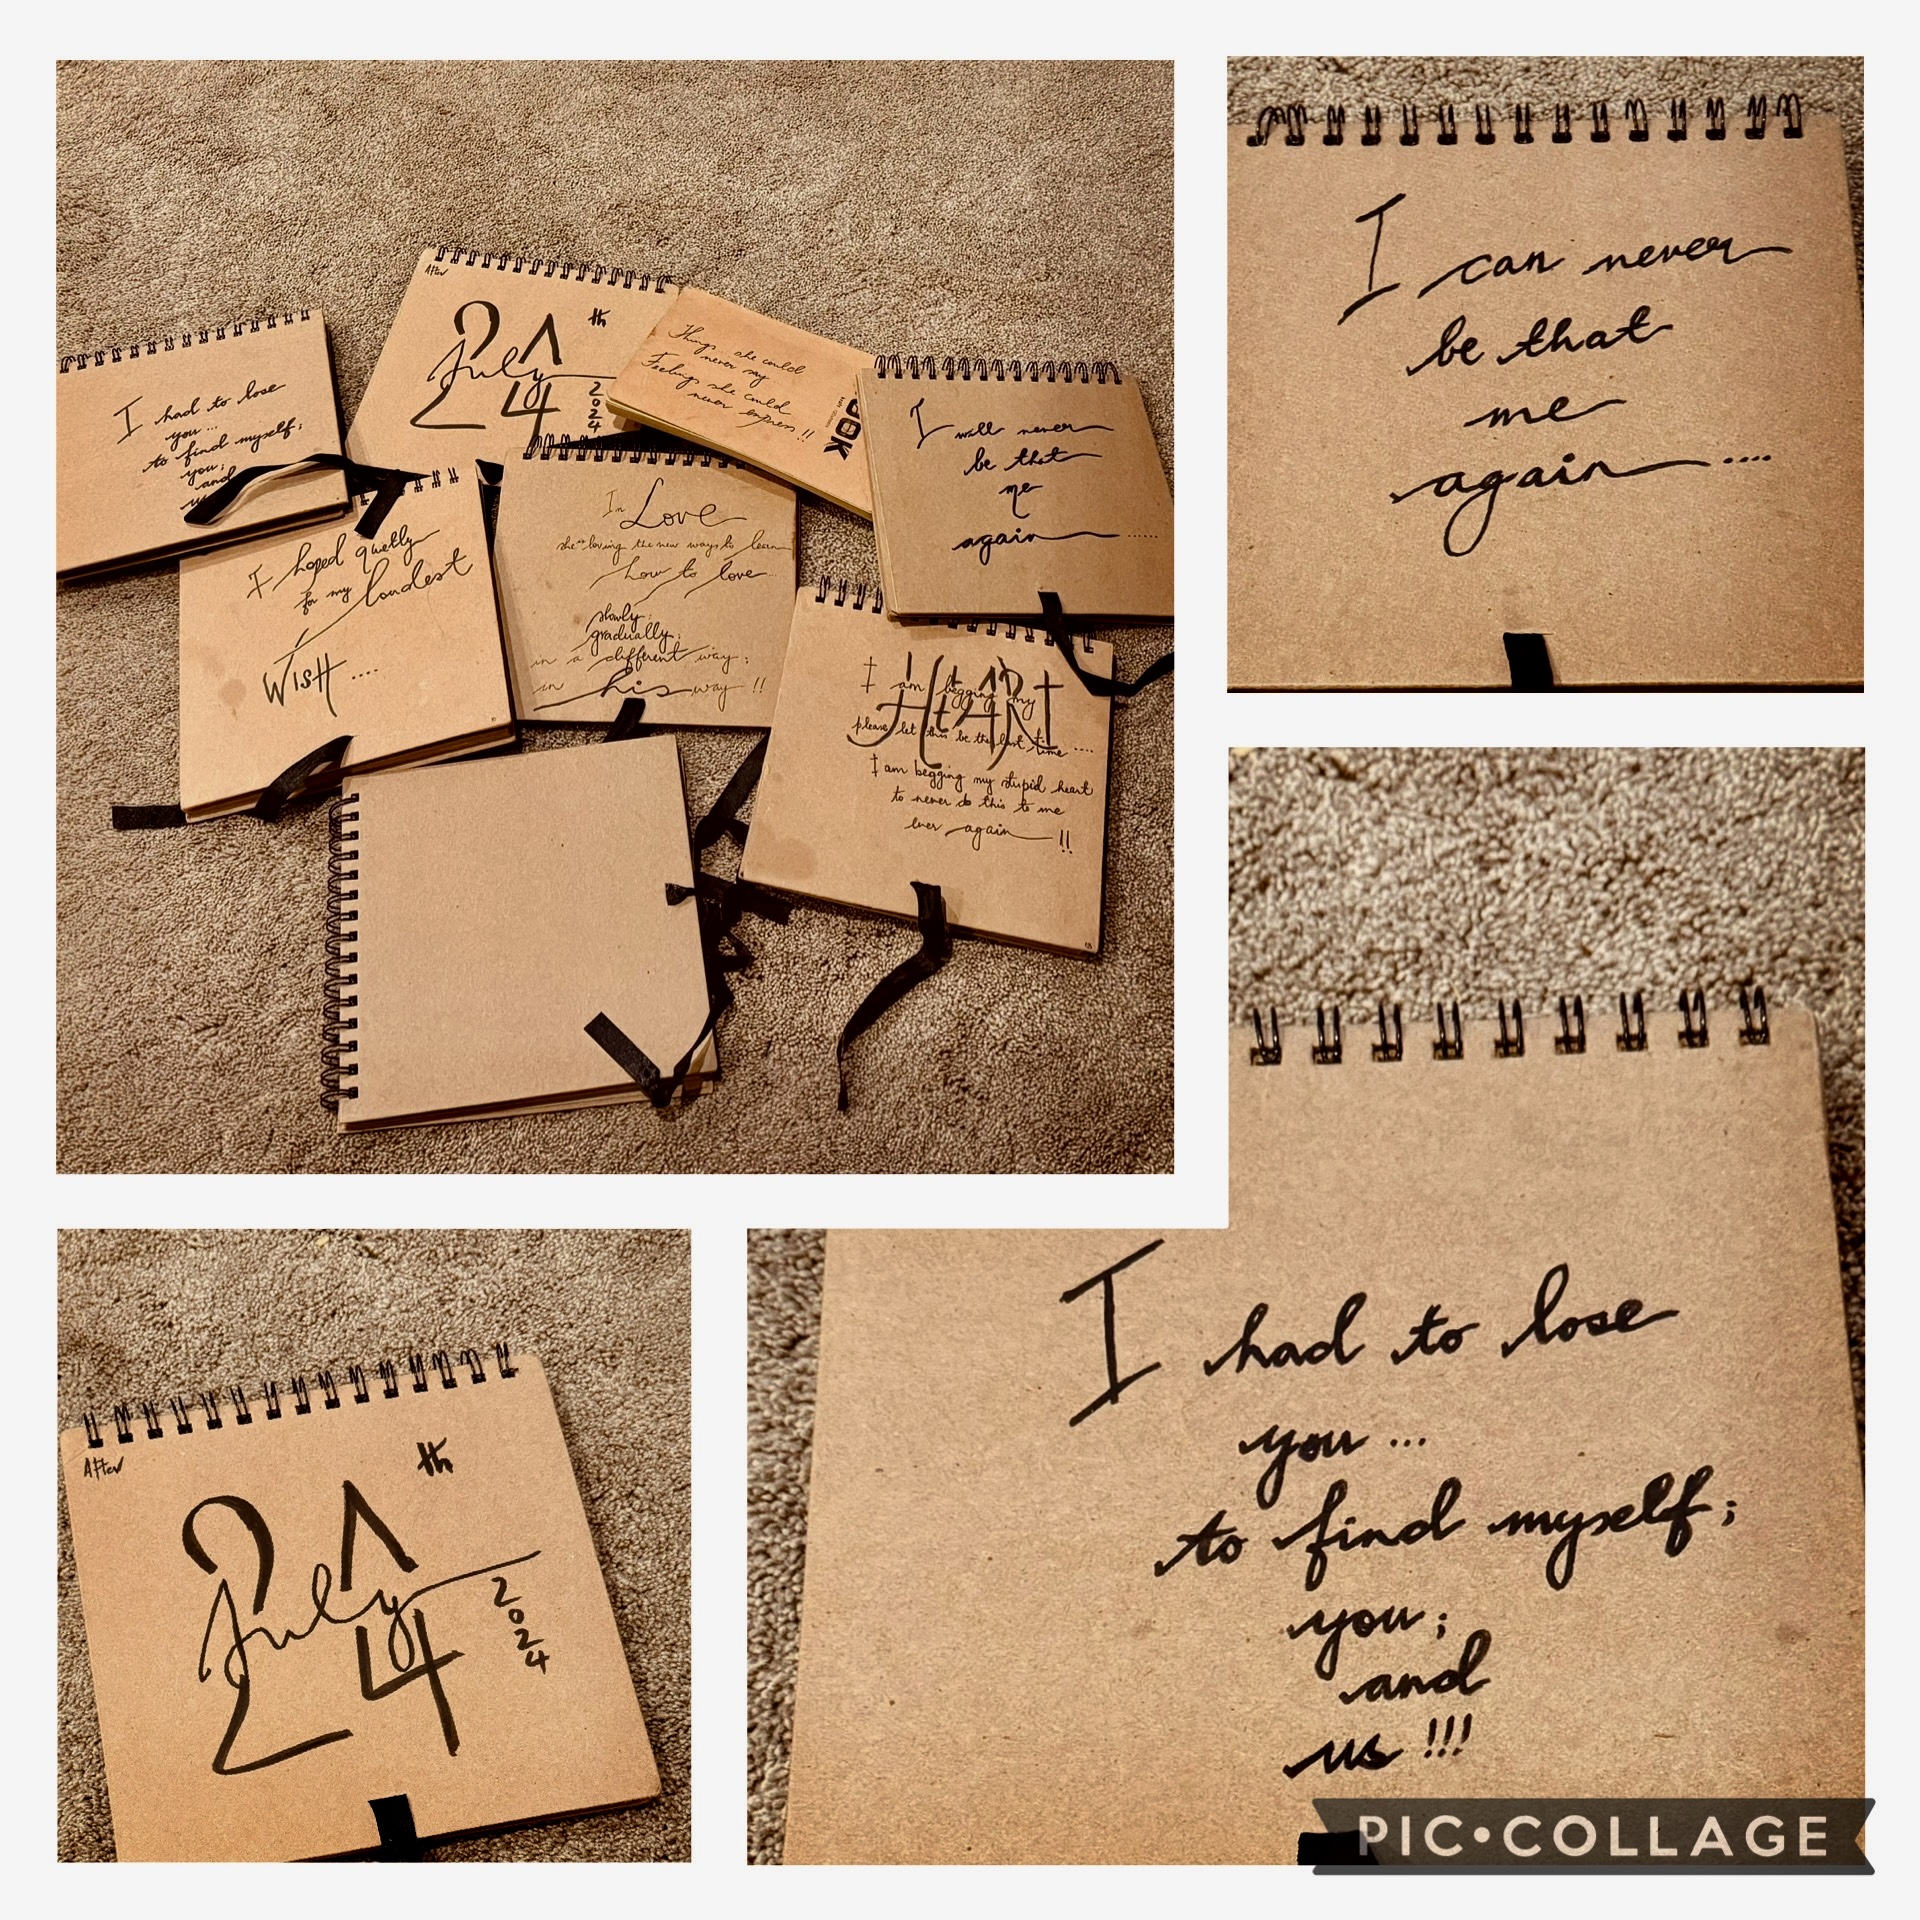 I had to lose
you...
to find myself;
you;
and
us
After
24th
July
2024
Things she could
never say
Feelings she could
never express!!
I will never
be that
me
again......
I hoped quietly
for my loudest
WISH....
In Love
loving the new ways to learn
how to love...
slowly;
gradually;
in a different way;
in his way !!
HEART
I am begging my
please let this be the last time ....
I am begging my stupid heart
to never do this to me
ever again !!
I can never
be that
me
again ....
After
24th
July
2024
I had to lose
you ...
to find myself;
you;
and
us !!!
PIC•COLLAGE